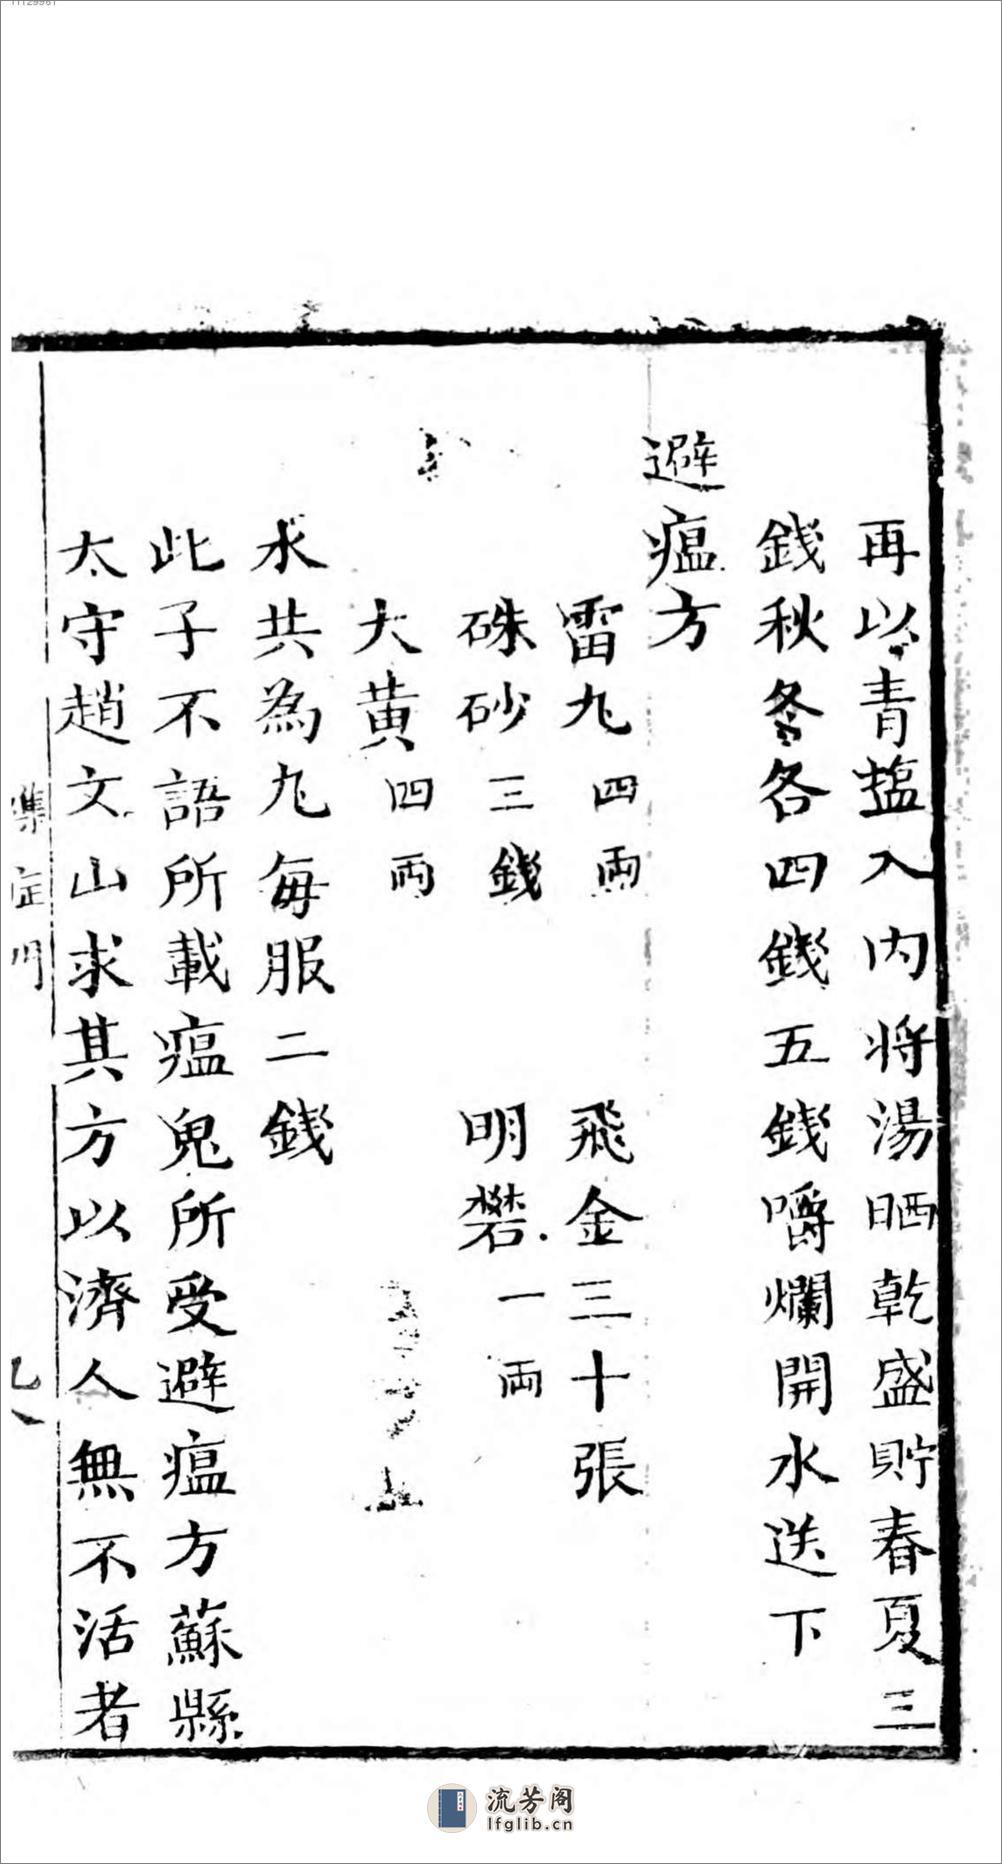 再以青盐入内将湯晒乾盛貯春夏三
錢秋冬各四錢五錢嚼爛開水送下
避瘟方
雷丸四両　飛金三十張
硃砂三錢　明礬一両
大黄四両
水共為丸每服二錢
此子不語所載瘟鬼所受避瘟方蘇縣
太守趙文山求其方以濟人無不活者
流芳阁
lfglib.cn